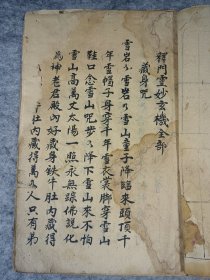 釋門靈妙玄機全部
藏身咒
雪岩々雪岩々雪山童子降臨來頭頂千
年雪帽子身穿千年雪衣裳脚穿雪山
鞋口念雪山咒步々降下雪山來不怕
雪山高萬丈太陽一照永無踪佛說化
為神老君殿內好藏身鉄牛肚內
肚內藏得萬々人只有弟